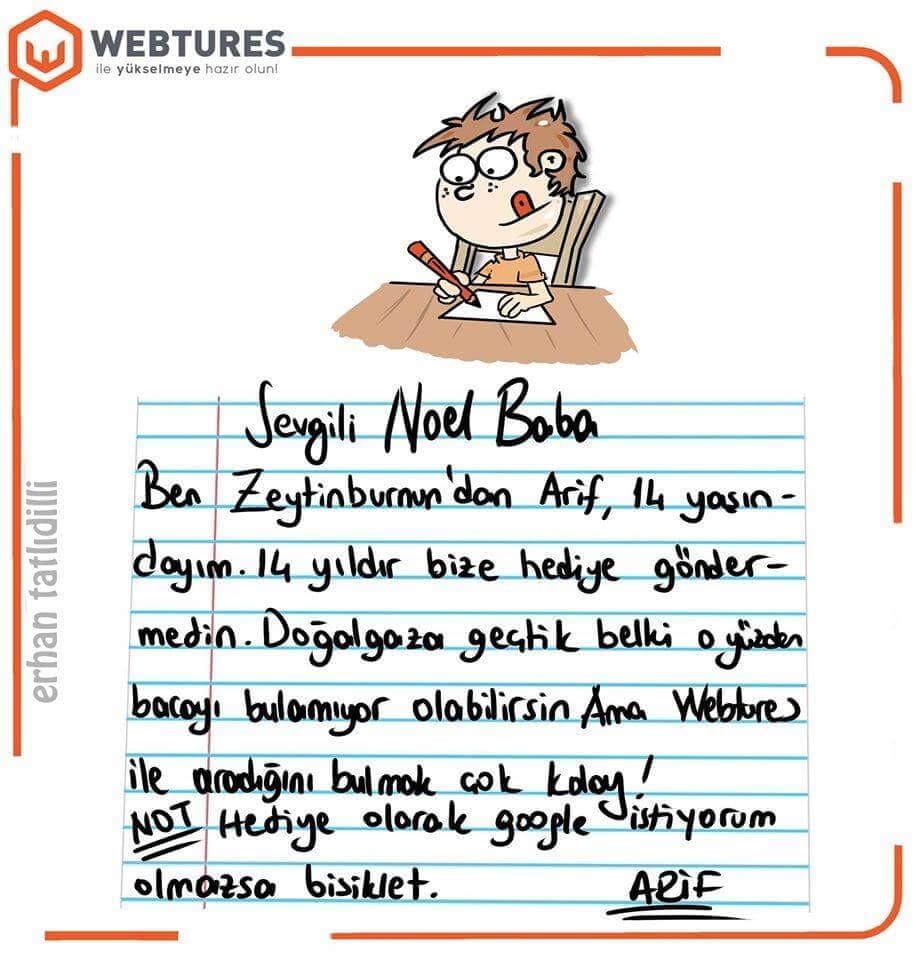 WEBTURES
ile yükselmeye hazır olun!
Sevgili Noel Baba
Ben Zeytinburnun'dan Arif, 14 yaşın-
dayım. 14 yıldır bize hediye gönder-
medin. Doğalgaza geçtik belki o yüzden
bacayı bulamıyor olabilirsin Ama Webtures
ile aradığını bulmak çok kolay!
NOT Hediye olarak google istiyorum
olmazsa bisiklet. ARİF
erhan tatlıdilli